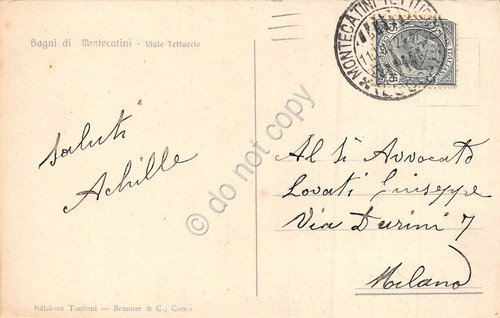 Bagni di Montecatini - Viale Tettuccio
MONTECATINI TETTUCCIO
Saluti
Achille
Al Sì Avvocato
Lovati Giuseppe
Via Durini 7
Milano
do not copy
Edizione Tonfoni — Brunner & C., Como